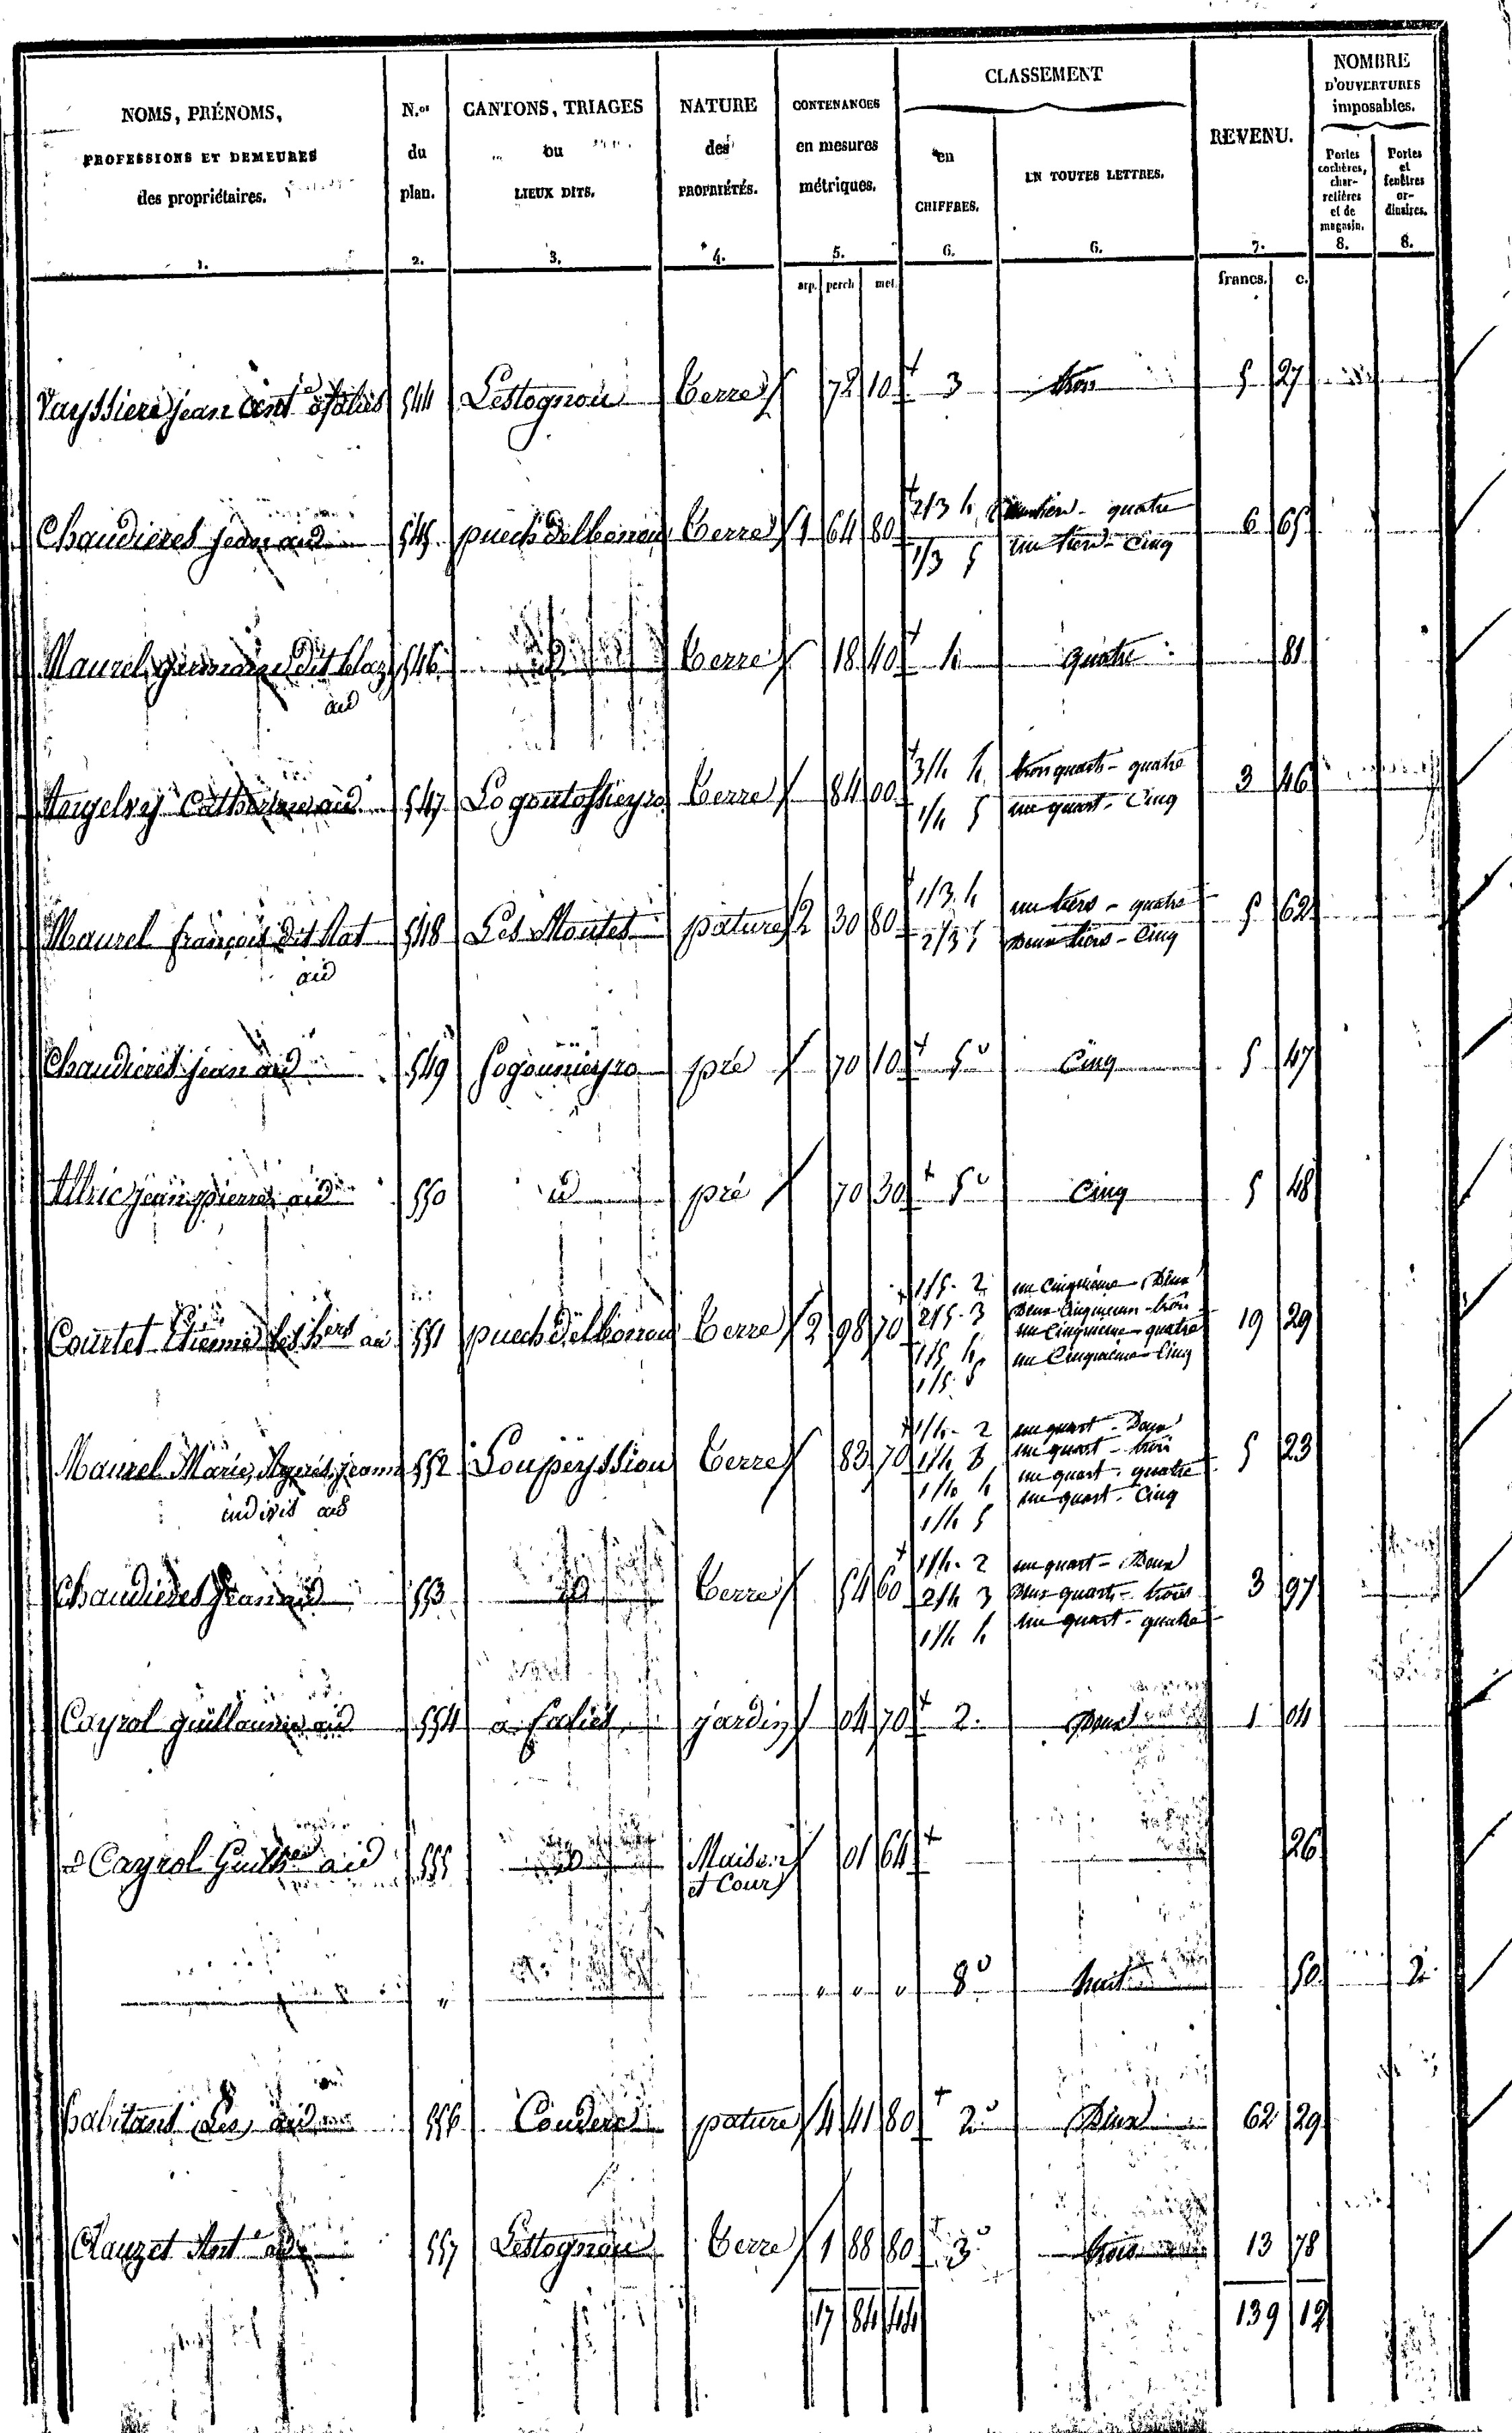 NOMS, PRÉNOMS,
PROFESSIONS ET DEMEURES
des propriétaires.
1.
N.os
du
plan.
2.
CANTONS, TRIAGES
ou
LIEUX DITS.
3.
NATURE
des
PROPRIÉTÉS.
4.
CONTENANCES
en mesures
métriques.
5.
CLASSEMENT
en
CHIFFRES.
6.
EN TOUTES LETTRES.
6.
REVENU.
7.
NOMBRE
D'OUVERTURES
imposables.
Portes
cochères,
char-
retières
et de
magasin.
8.
Portes
et
fenêtres
or-
dinaires.
8.
arp. perch met.
francs. c.
Vayssiere jean 544 Lestognou terre 72 10 3 trois 5 27
Chaudieres jean aid 545 puech terre 1 64 80 2/3 4 quatre 6 65
1/3 5 un tiers - Cinq
Maurel dit 546 id terre 18 40 4 quatre 81
aid
Angelvy Catherine aid 547 terre 84 00 3/4 4 trois quarts - quatre 3 46
1/4 5 un quart - Cinq
Maurel françois dit 548 Les Moutes pature 2 30 80 1/3 4 un tiers - quatre 5 62
aid 2/3 5 Deux tiers - Cinq
Chaudieres jean aid 549 pré 70 10 5 Cinq 5 47
Alric jean pierre aid 550 id pré 70 30 5 Cinq 5 48
Courtet Etienne les hers 551 puech terre 2 98 70 1/5 - 2 un Cinquieme - Deux 19 29
2/5 - 3 Deux Cinquiemes - trois
1/5 4 un Cinquieme - quatre
1/5 5 un Cinquieme - Cinq
Maurel Marie, Agnès, jeanne 552 Loupeyssiou terre 83 70 1/4 - 2 un quart - Deux 5 23
indivis aid 1/4 3 un quart - trois
1/4 4 un quart - quatre
1/4 5 un quart - Cinq
Chaudieres jean aid 553 id terre 54 60 1/4 - 2 un quart - Deux 3 97
2/4 3 Deux quarts - trois
1/4 4 un quart - quatre
Cayrol guillaume aid 554 à falies jardin 04 70 2 Deux 1 04
Cayrol aid 555 id Maison 01 64 26
et Cour
" " " " 8 huit 50 2
habitans Les aid 556 Couderc pature 4 41 80 2 Deux 62 29
Clauzet Ant 557 Lestognou terre 1 88 80 3 trois 13 78
17 84 44 139 12